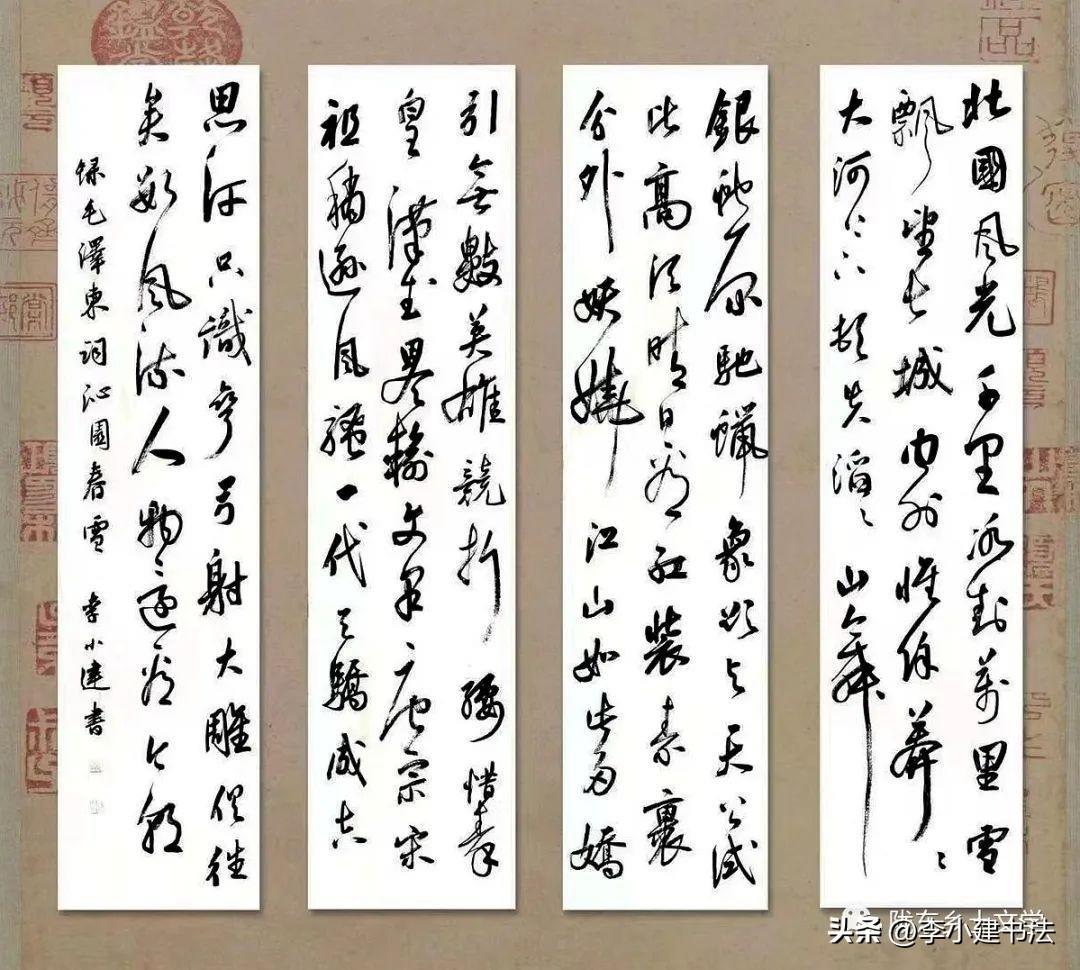 北國風光千里冰封萬里雪
飄望長城內外惟餘莽〻
大河上下頓失滔〻山舞
銀蛇原馳蠟象欲與天公試
比高須晴日看紅裝素裹
分外妖嬈江山如此多嬌
引無數英雄競折腰惜秦
皇漢武畧輸文采唐宗宋
祖稍遜風騷一代天驕成吉
思汗只識彎弓射大雕俱往
矣數風流人物還看今朝
錄毛澤東詞沁園春雪 李小建書
陇东乡土文学
头条 @李小建书法